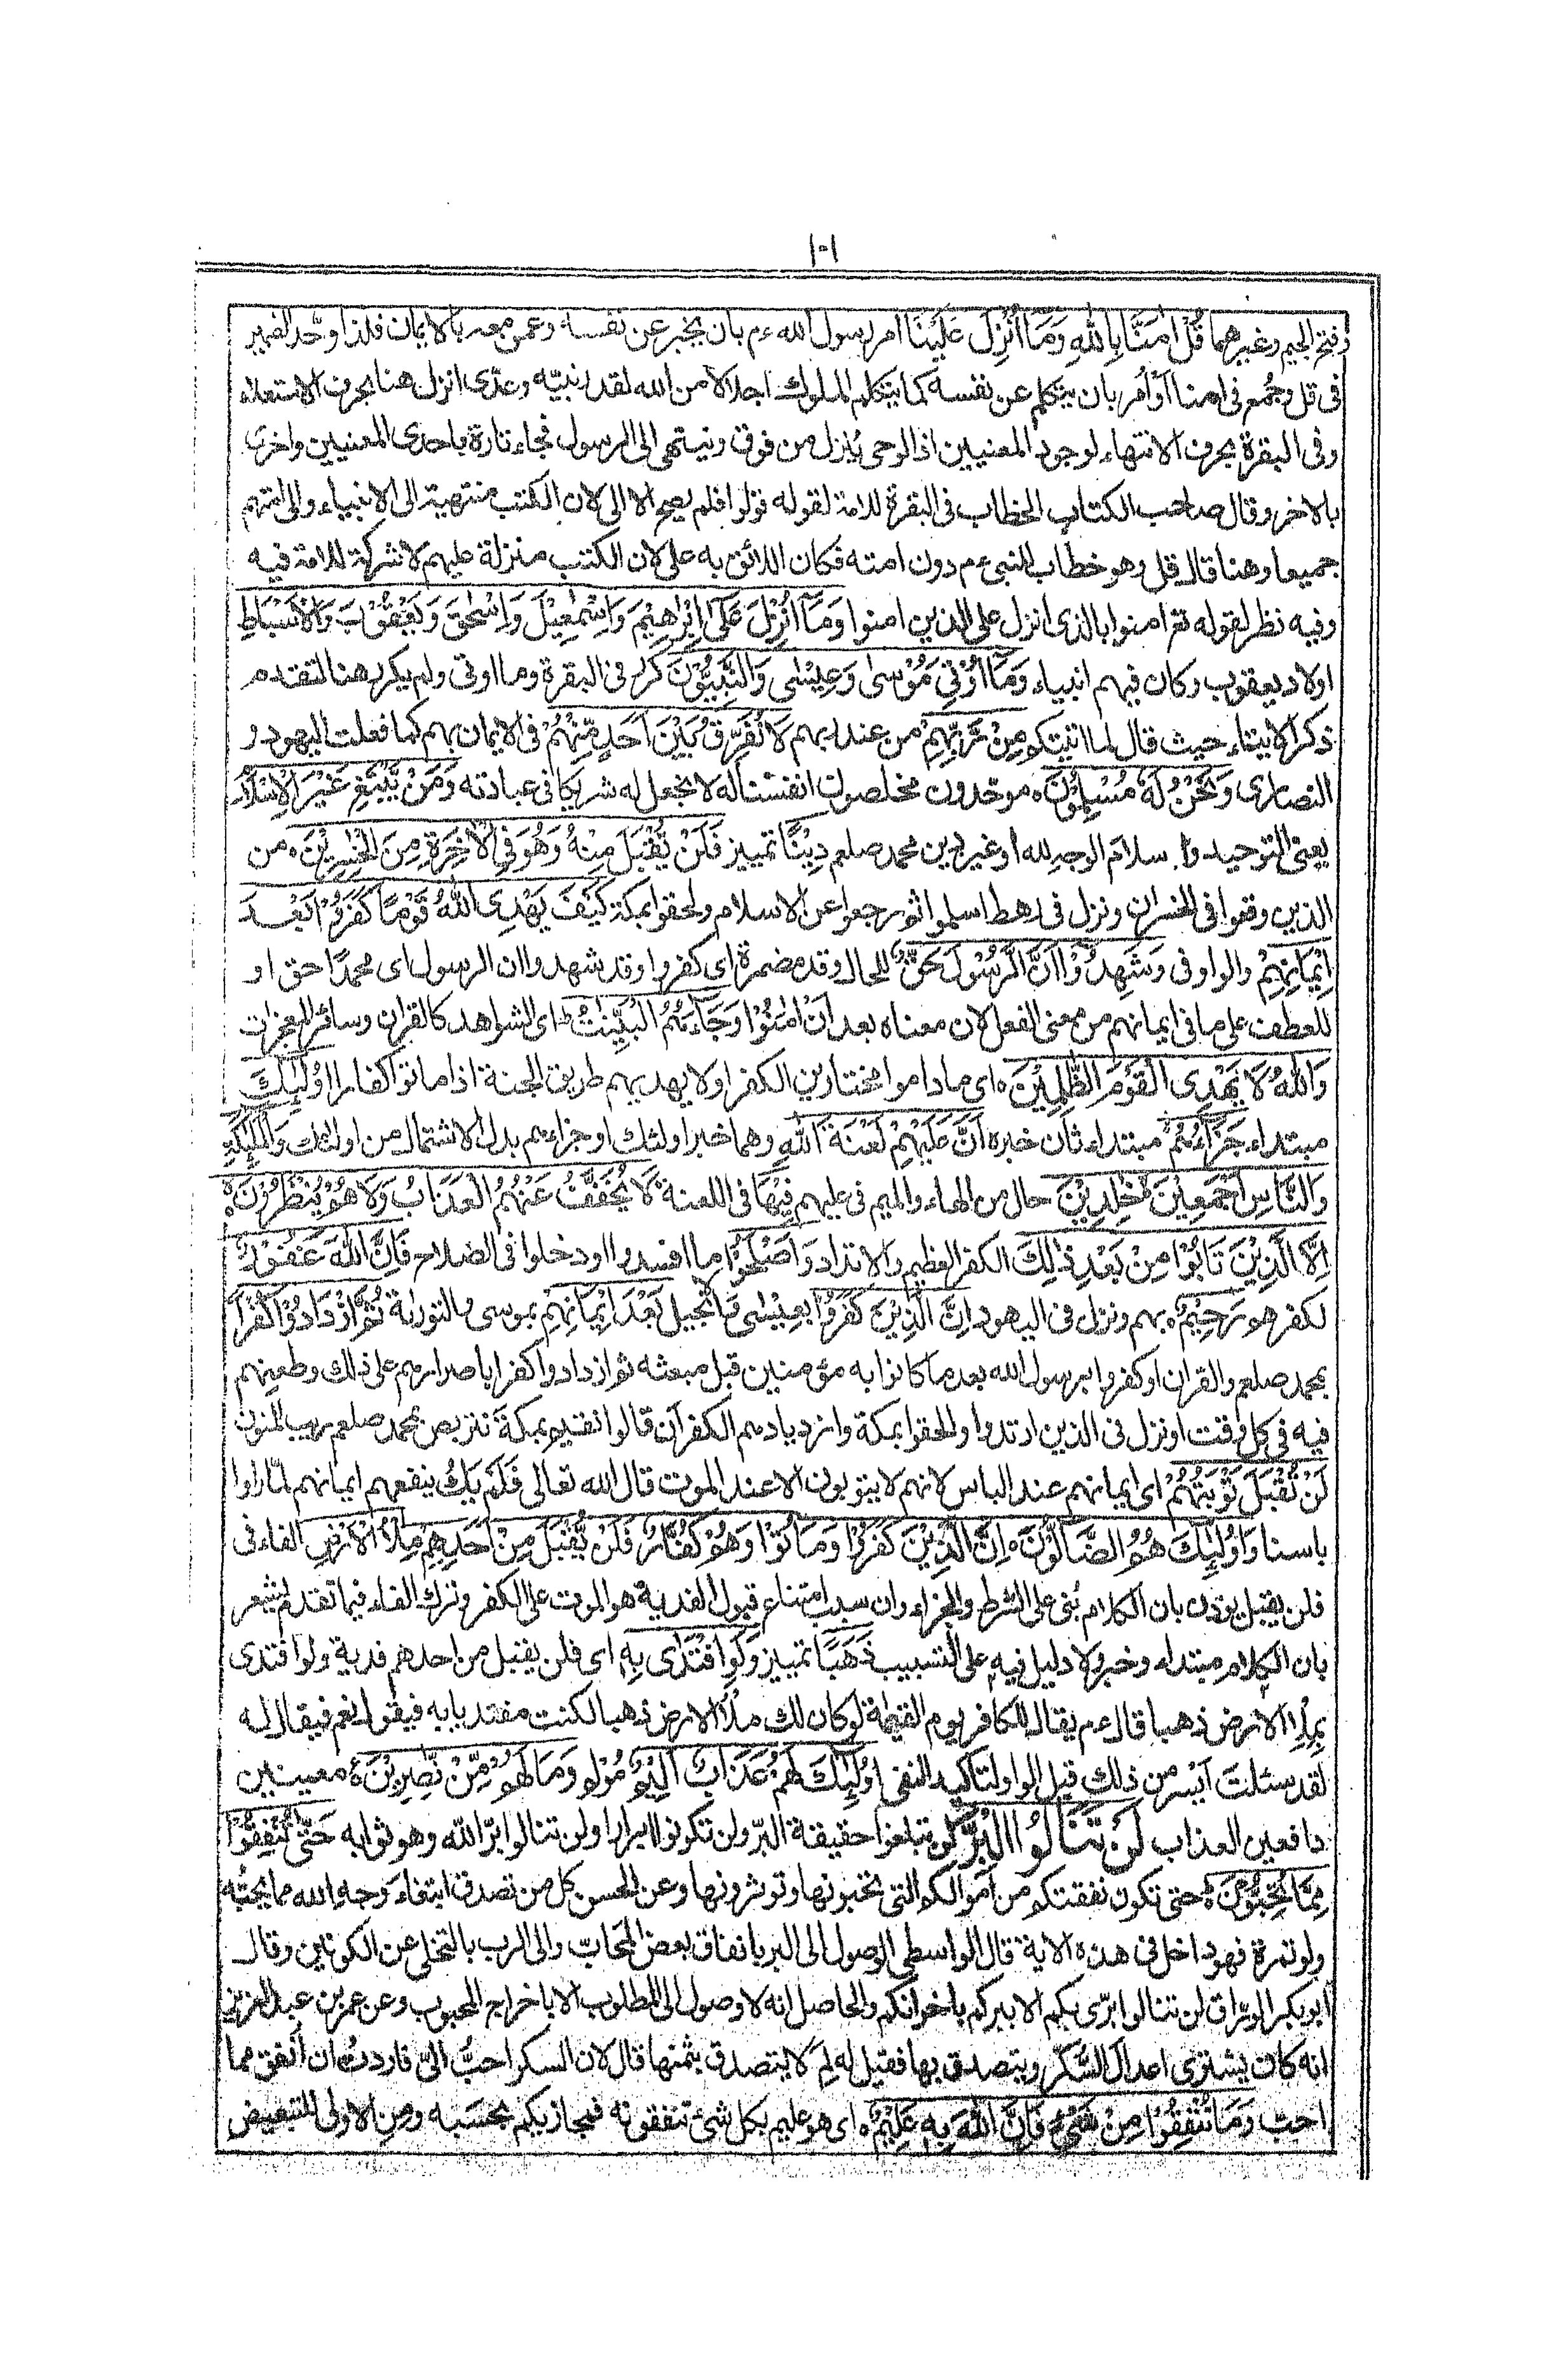 ١٠١
وفتح الجيم وغيرهما قُلْ اٰمَنَّا بِاللّٰهِ وَمَآ اُنْزِلَ عَلَيْنَا امر رسول الله ءم بان يخبر عن نفسه وعمن معه بالايمان فلذا وحّد الضمير
فى قل وجُمع فى امنا اَوْ اُمر بان يتكلم عن نفسه كما يتكلم الملوك اجلالا من الله لقدر نبيّه وعدّى انزل هنا بحرف الاستعلاء
وفى البقرة بحرف الانتهاء لوجود المعنيين اذ الوحى يُنزل من فوق وينتهى الى الرسول فجاء تارة باحدى المعنيين واخرى
بالاخر وقال صاحب الكتاب الخطاب فى البقرة للامة لقوله قولوا فلم يصح الا الى لان الكتب منتهية الى الانبياء والى امتهم
جميعا وهنا قال قل وهو خطاب للنبى ءم دون امته فكان اللائق به على لان الكتب منزلة عليهم لا شركة للامة فيه
وفيه نظر لقوله تع امنوا بالذى انزل على الذين امنوا وَمَآ اُنْزِلَ عَلٰٓى اِبْرٰهِيْمَ وَاِسْمٰعِيْلَ وَاِسْحٰقَ وَيَعْقُوْبَ وَالْاَسْبَاطِ
اولاد يعقوب وكان فيهم انبياء وَمَآ اُوْتِيَ مُوْسٰى وَعِيْسٰى وَالنَّبِيُّوْنَ كرر فى البقرة وما اوتى ولم يكرر هنا لتقدم
ذكر الايتاء حيث قال لما اتيتكم مِنْ رَّبِّهِمْ من عند ربهم لَا نُفَرِّقُ بَيْنَ اَحَدٍ مِّنْهُمْ فى الايمان بهم كما فعلت اليهود و
النصارى وَنَحْنُ لَهٗ مُسْلِمُوْنَ ه موحّدون مخلصون انفسنا له لا نجعل له شريكا فى عبادته وَمَنْ يَّبْتَغِ غَيْرَ الْاِسْلَامِ
يعنى التوحيد واسلام الوجه لله او غير دين محمد صلعم دِيْنًا تمييز فَلَنْ يُّقْبَلَ مِنْهُ وَهُوَ فِي الْاٰخِرَةِ مِنَ الْخٰسِرِيْنَ ه من
الذين وقعوا فى الخسران ونزل فى رهط اسلموا ثم رجعوا عن الاسلام ولحقوا بمكة كَيْفَ يَهْدِى اللّٰهُ قَوْمًا كَفَرُوْا بَعْدَ
اِيْمَانِهِمْ والواو فى وَشَهِدُوْٓا اَنَّ الرَّسُوْلَ حَقٌّ للحال وقد مضمرة اى كفروا وقد شهدوا ان الرسول اى محمدًا حق او
للعطف على ما فى ايمانهم من معنى الفعل لان معناه بعد اَنْ اٰمَنُوْا وَجَآءَهُمُ الْبَيِّنٰتُ ط اى الشواهد كالقران وسائر المعجزات
وَاللّٰهُ لَا يَهْدِى الْقَوْمَ الظّٰلِمِيْنَ ه اى ما داموا مختارين الكفر او لا يهديهم طريق الجنة اذا ماتوا كفارا اُولٰٓئِكَ
مبتداء جَزَآؤُهُمْ مبتداء ثان خبره اَنَّ عَلَيْهِمْ لَعْنَةَ اللّٰهِ وهما خبر اولئك او جزاءهم بدل الاشتمال من اولئك وَالْمَلٰٓئِكَةِ
وَالنَّاسِ اَجْمَعِيْنَ خٰلِدِيْنَ حال من الهاء والميم فى عليهم فِيْهَا فى اللعنة لَا يُخَفَّفُ عَنْهُمُ الْعَذَابُ وَلَا هُمْ يُنْظَرُوْنَ ه
اِلَّا الَّذِيْنَ تَابُوْا مِنْ بَعْدِ ذٰلِكَ الكفر العظيم والارتداد وَاَصْلَحُوْا ما افسدوا او دخلوا فى الصلاح فَاِنَّ اللّٰهَ غَفُوْرٌ
لكفرهم رَّحِيْمٌ ه بهم ونزل فى اليهود اِنَّ الَّذِيْنَ كَفَرُوْا بعيسٰى والانجيل بَعْدَ اِيْمَانِهِمْ بموسى والتوراية ثُمَّ ازْدَادُوْا كُفْرًا
بمحمد صلعم والقران او كفروا برسول الله بعد ما كانوا به مؤمنين قبل مبعثه ثم ازدادوا كفرا باصرارهم على ذلك وطعنهم
فيه فى كل وقت او نزل فى الذين ارتدوا ولحقوا بمكة وازديادهم الكفر اَن قالوا نقيم بمكة نتربص بمحمد صلعم ريب المنون
لَنْ تُقْبَلَ تَوْبَتُهُمْ اى ايمانهم عند الباس لانهم لا يتوبون الا عند الموت قال الله تعالى فَلَمْ يَكُ ينفعهم ايمانهم لمّا راوا
باسنا وَاُولٰٓئِكَ هُمُ الضَّآلُّوْنَ ه اِنَّ الَّذِيْنَ كَفَرُوْا وَمَاتُوْا وَهُمْ كُفَّارٌ فَلَنْ يُّقْبَلَ مِنْ اَحَدِهِمْ مِّلْءُ الْاَرْضِ الفاء فى
فلن يقبل يوذن بان الكلام بُنى على الشرط والجزاء وان سبب امتناع قبول الفدية هو الموت على الكفر وترك الفاء فيما تقدم يشعر
بان الكلام مبتداء وخبر ولا دليل فيه على التسبيب ذَهَبًا تمييز وَّلَوِ افْتَدٰى بِهٖ اى فلن يقبل من احدهم فدية ولو افتدى
بِمِلْءِ الارض ذهبا قال ءم يقال للكافر يوم القيٰمة لو كان لك ملأ الارض ذهبا لكنت مفتديا به فيقول نعم فيقال له
لقد سئلت ايسر من ذلك قيل الواو لتاكيد النفى اُولٰٓئِكَ لَهُمْ عَذَابٌ اَلِيْمٌ مؤلم وَّمَا لَهُمْ مِّنْ نّٰصِرِيْنَ ع معينين
دافعين العذاب لَنْ تَنَالُوا الْبِرَّ لن تبلغوا حقيقة البر ولن تكونوا الابرار او لن تنالوا برّ الله وهو ثوابه حَتّٰى تُنْفِقُوْا
مِمَّا تُحِبُّوْنَ ط حتى تكون نفقتكم من اموالكم التى تحبونها وتوثرونها وعن الحسن كل من تصدق ابتغاء وجه الله مما يحبّه
ولو تمرة فهو داخل فى هذه الاية قال الواسطى الوصول الى البر بانفاق بعض المحابّ والى الرب بالتخلى عن الكونين وقال
ابو بكر الورّاق لن تنالوا برّى بكم الا ببركم باخوانكم والحاصل انه لا وصول الى المطلوب الا باخراج المحبوب وعن عمر بن عبد العزيز
انه كان يشترى اعدال السُّكّر ويتصدق بها فقيل له لِمَ لا يتصدق بثمنها قال لان السكر احبُّ الىّ فاردتُ ان اُنفق مما
احب وَمَا تُنْفِقُوْا مِنْ شَىْءٍ فَاِنَّ اللّٰهَ بِهٖ عَلِيْمٌ ه اى هو عليم بكل شئ تنفقونه فيجازيكم بحسَبه ومِن الاولى للتبعيض